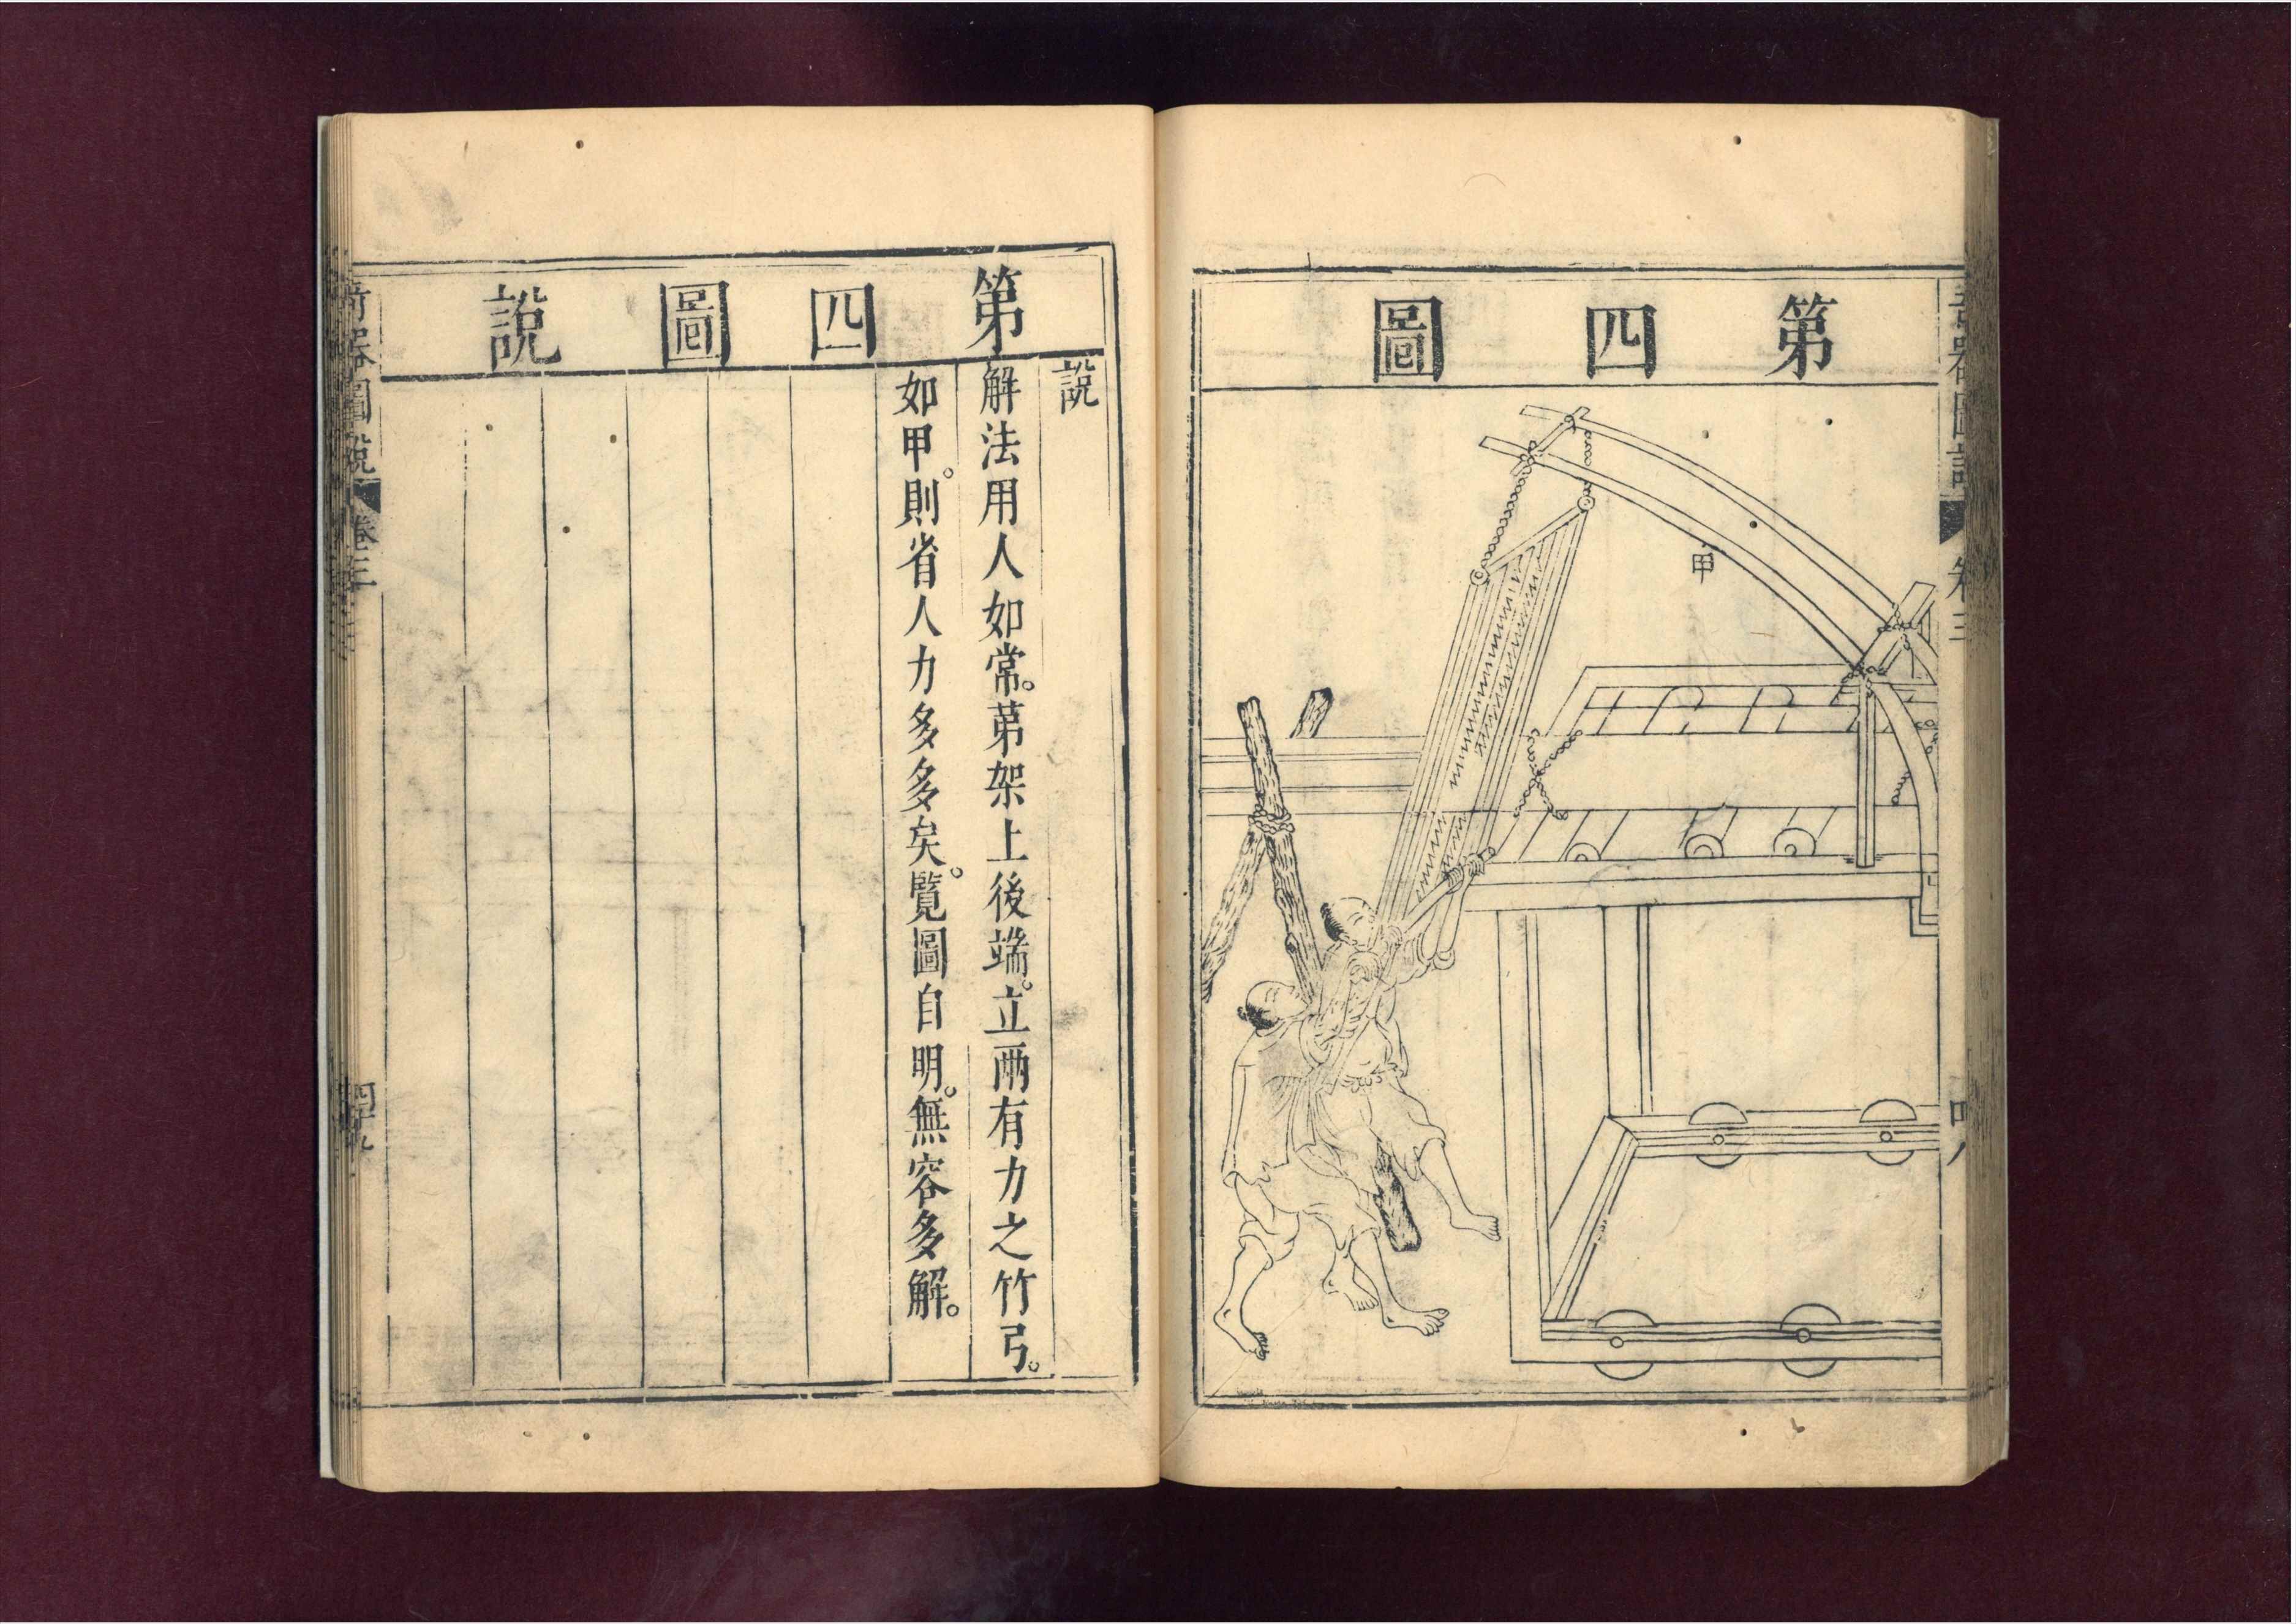 第四圖
甲
奇器圖說 卷三 四八
第四圖說
說
解法用人如常。第架上後端。立兩有力之竹弓。
如甲。則省人力多多矣。覽圖自明。無容多解。
奇器圖說 卷三 四十九